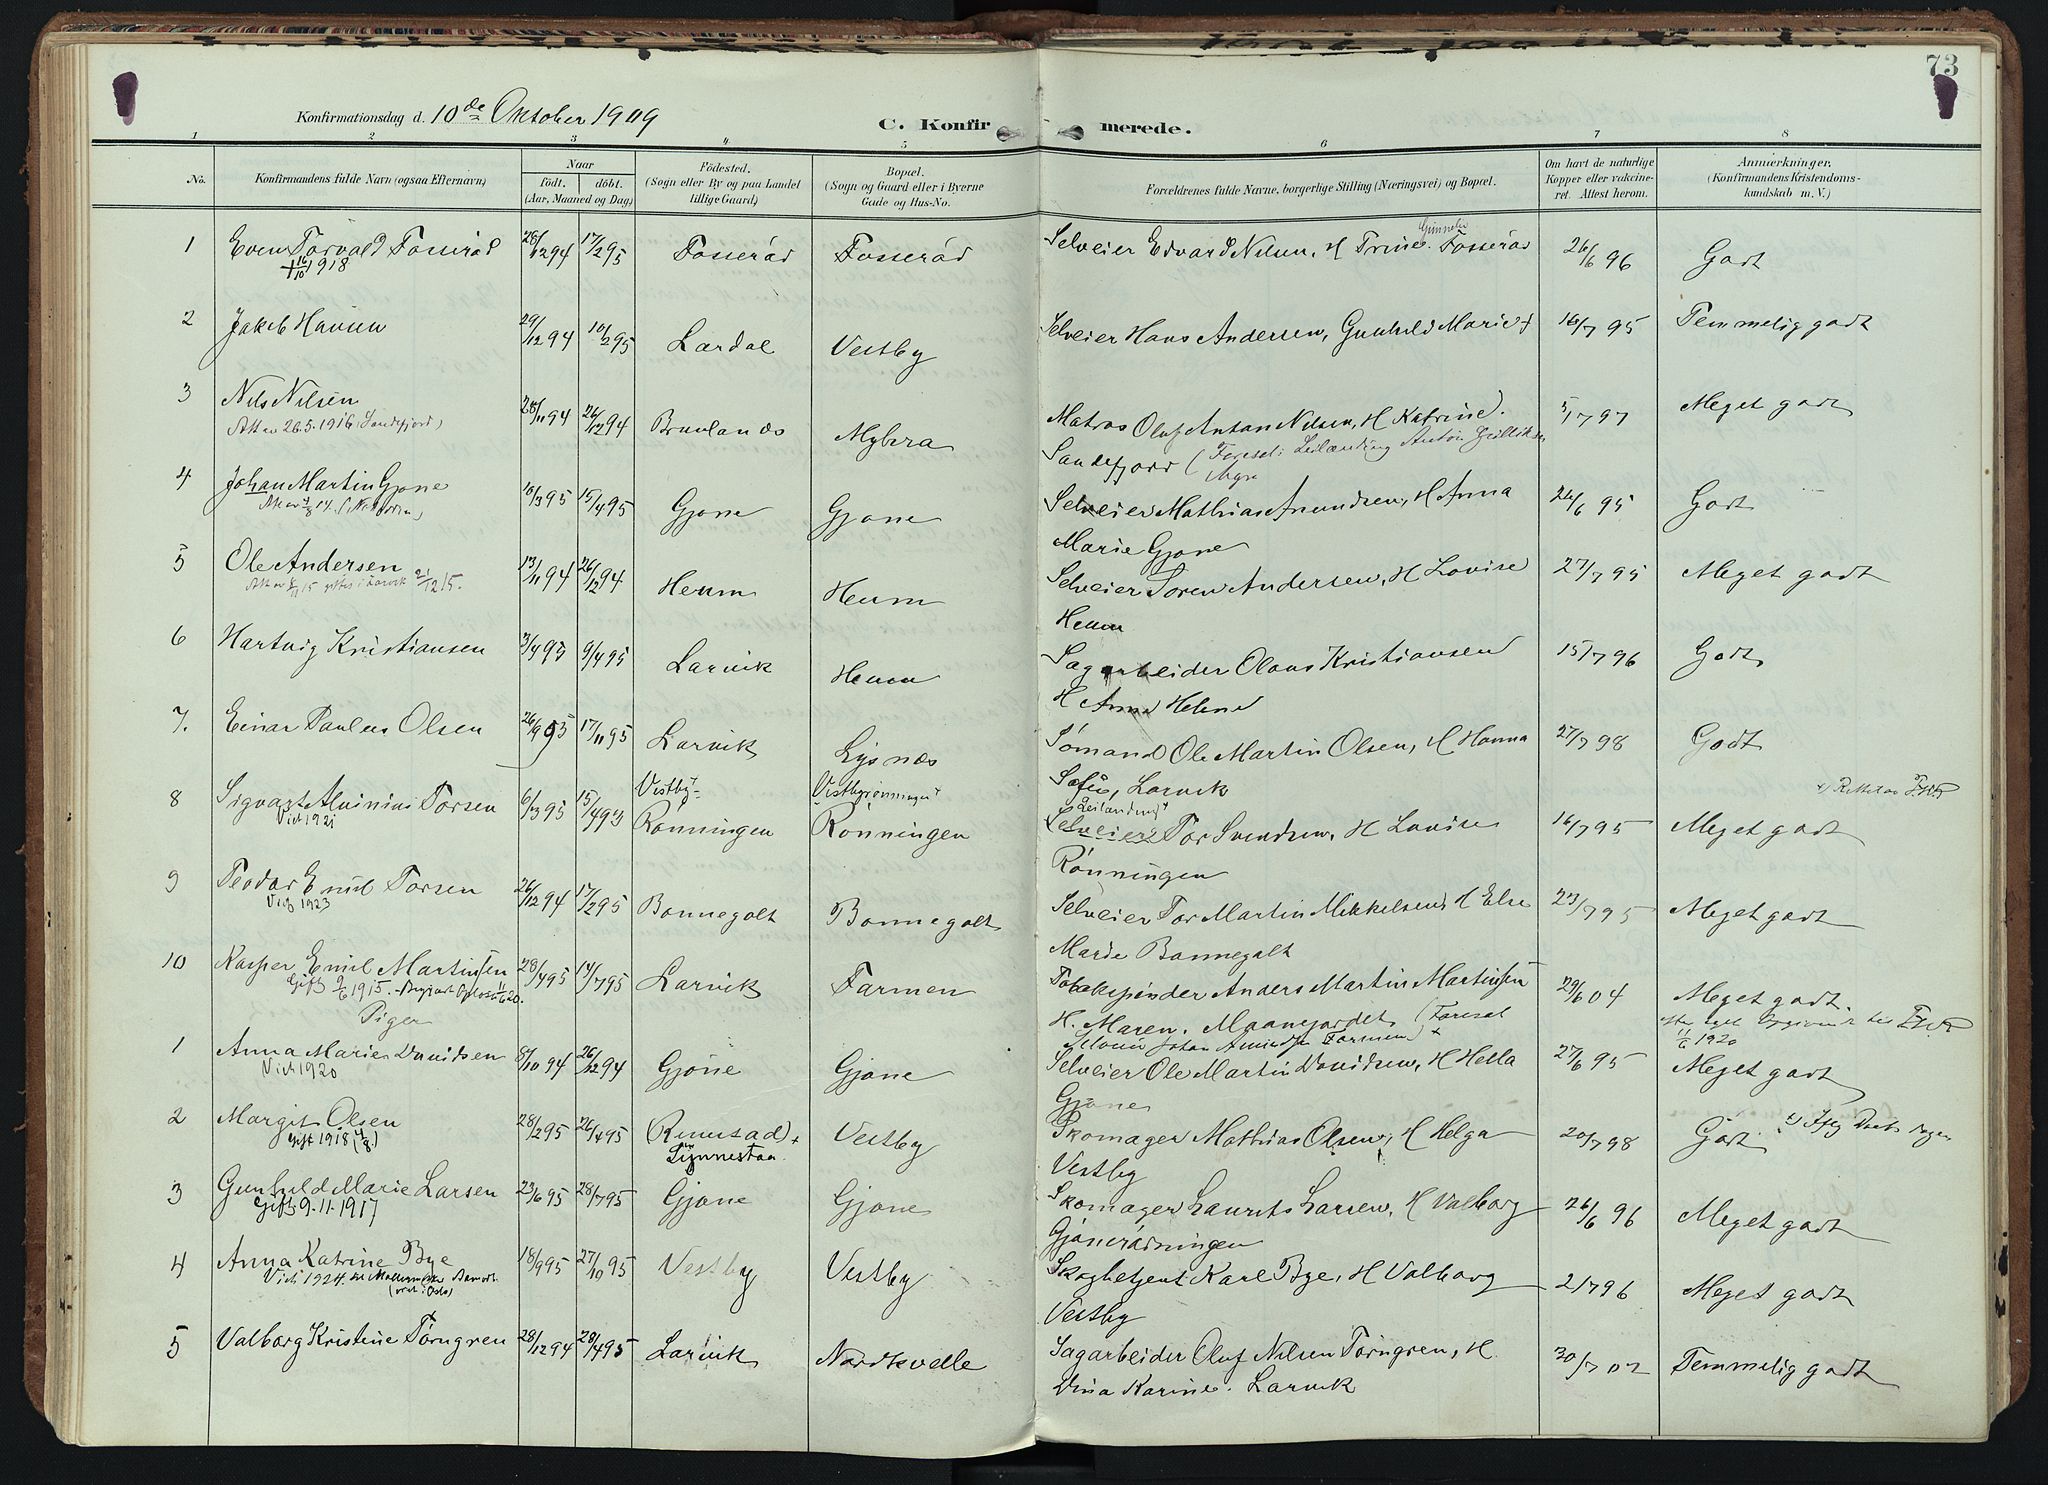 73
Konfirmationsdag d. 10de Oktober 1909
C. Konfirmerede.
1 2 3 4 5 6 7 8
No.
Konfirmandens fulde Navn (ogsaa Efternavn)
Naar
födt. döbt.
(Aar, Maaned og Dag)
Födested.
(Sogn eller By og paa Landet
tillige Gaard)
Bopæl.
(Sogn og Gaard eller i Byerne
Gade og Hus-No.
Forældrenes fulde Navne, borgerlige Stilling (Næringsvei) og Bopæl.
Om havt de naturlige
Kopper eller vakcine-
ret. Attest herom.
Anmærkninger.
(Konfirmandens Kristendoms-
kundskab m. V.)
1 Even Torvald Fosserød 28/12 94 17/2 95 Fosserød Fosserød Selveier Edvard Nilsen, H Trine Gunnelie Fosserød 26/6 96 Godt
+ 16/10 1918
2 Jakob Hansen 29/12 94 10/2 95 Lardal Vestby Selveier Hans Andersen, Gunhild Marie + 16/7 95 Temmelig godt
3 Nils Nilsen 28/11 94 26/12 94 Brunlanes Myhra Matros Oluf Antan Nilsen, H Katrine). 5/7 97 Meget godt
Att av 26.5.1916 (Sandefjord)
Sandefjord (Foresat: Leilænding Anton
Myra
4 Johan Martin Gjone 10/3 95 15/4 95 Gjone Gjone Selveier Mathias Amundsen, H Anna 24/6 95 Godt
Marie Gjone
5 Ole Andersen 13/11 94 26/12 94 Heum Heum Selveier Soren Andersen, H Lovise 27/7 95 Meget godt
giftes i Larvik 21/12 15.
Heum
6 Hartvig Kristiansen 3/4 93 9/4 95 Larvik Heum Sagarbeider Olaus Kristiansen 15/7 96 Godt
H Anna Helene
7. Einar Paulus Olsen 26/9 95 17/11 95 Larvik Lysnes Sømand Ole Martin Olsen, H Hanna 27/7 98 Godt
Sofie, Larvik
8 Sigvart Torsen 6/3 95 15/4 93 Vestby- Rønningen Vestbyrønningen + Rønningen Leilænding + Selveier Tor Svendsen, H Lovise 16/7 95 Meget godt
Vid 1921
Rønningen
9 Teodor Emil Torsen 26/12 94 17/2 95 Bonnegolt Bonnegolt Selveier Tor Martin Mikkelsen, H Else 23/7 95 Meget godt
Vid 1923
Marie Bonnegolt
10 Kasper Emil Martinsen 28/4 95 14/7 95 Larvik Farmen Tobakspinder Anders Martin Martinsen 29/6 04 Meget godt.
Gift 9/6 1915. 11/6 20.
H. Maren. Maanejordet (Foresat
Johan Farmen) +
11/6 1920
Piger
1 Anna Marie Davidsen 8/10 94 26/12 94 Gjone Gjone Selveier Ole Martin Davidsen, H Hella 27/6 95 Meget godt
Vid 1920
Gjone
2 Margit Olsen 28/2 95 26/4 95 (Rimstad) + Linnestad. Vestby Skomager Mathias Olsen, H Helga 20/7 98 Godt.
Gift 1918 (4/8)
Vestby
3 Gunhild Marie Larsen 23/6 95 28/7 95 Gjone Gjone Skomager Laurits Larsen, H Valborg 26/6 96 Meget godt
Gift 9.11.1917
Gjonerødningen
4 Anna Katrine Bye 18/9 95 27/10 95 Vestby Vestby Skogbetjent Karl Bye, H Valborg 2/7 96 Meget godt
Vid 1924.
(viet i Oslo)
Vestby
5 Valborg Kristine Törngren 28/12 94 28/4 95 Larvik Nordkvelle Sagarbeider Oluf Nilsen Törngren, H 30/7 02 Temmelig godt
Vina Karine. Larvik